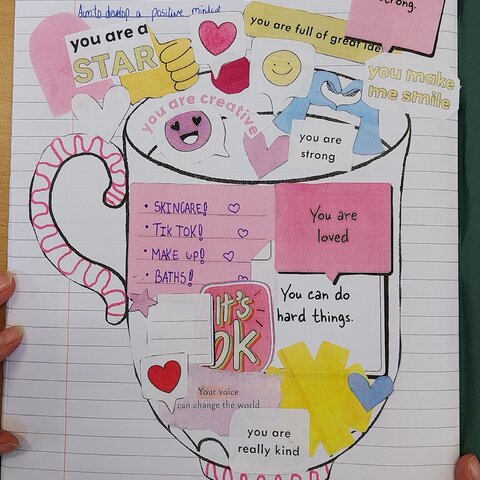 Aim to develop a positive mindset
strong.
you are full of great ide
you are a
STAR
you make
me smile
you are creative
you are
strong
• SKINCARE!
• TIK TOK!
• MAKE UP!
• BATHS!
You are
loved
IT'S
OK
You can do
hard things.
Your voice
can change the world
you are
really kind